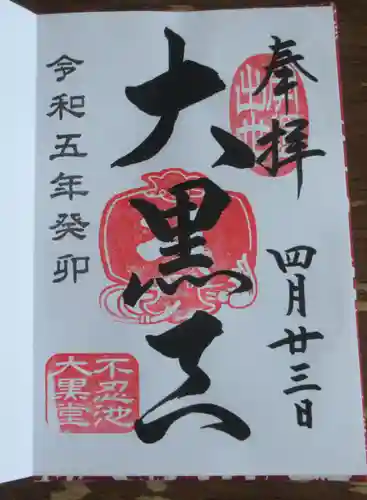 奉拝
四月廿三日
大黒天
令和五年癸卯
不忍池
大黒堂